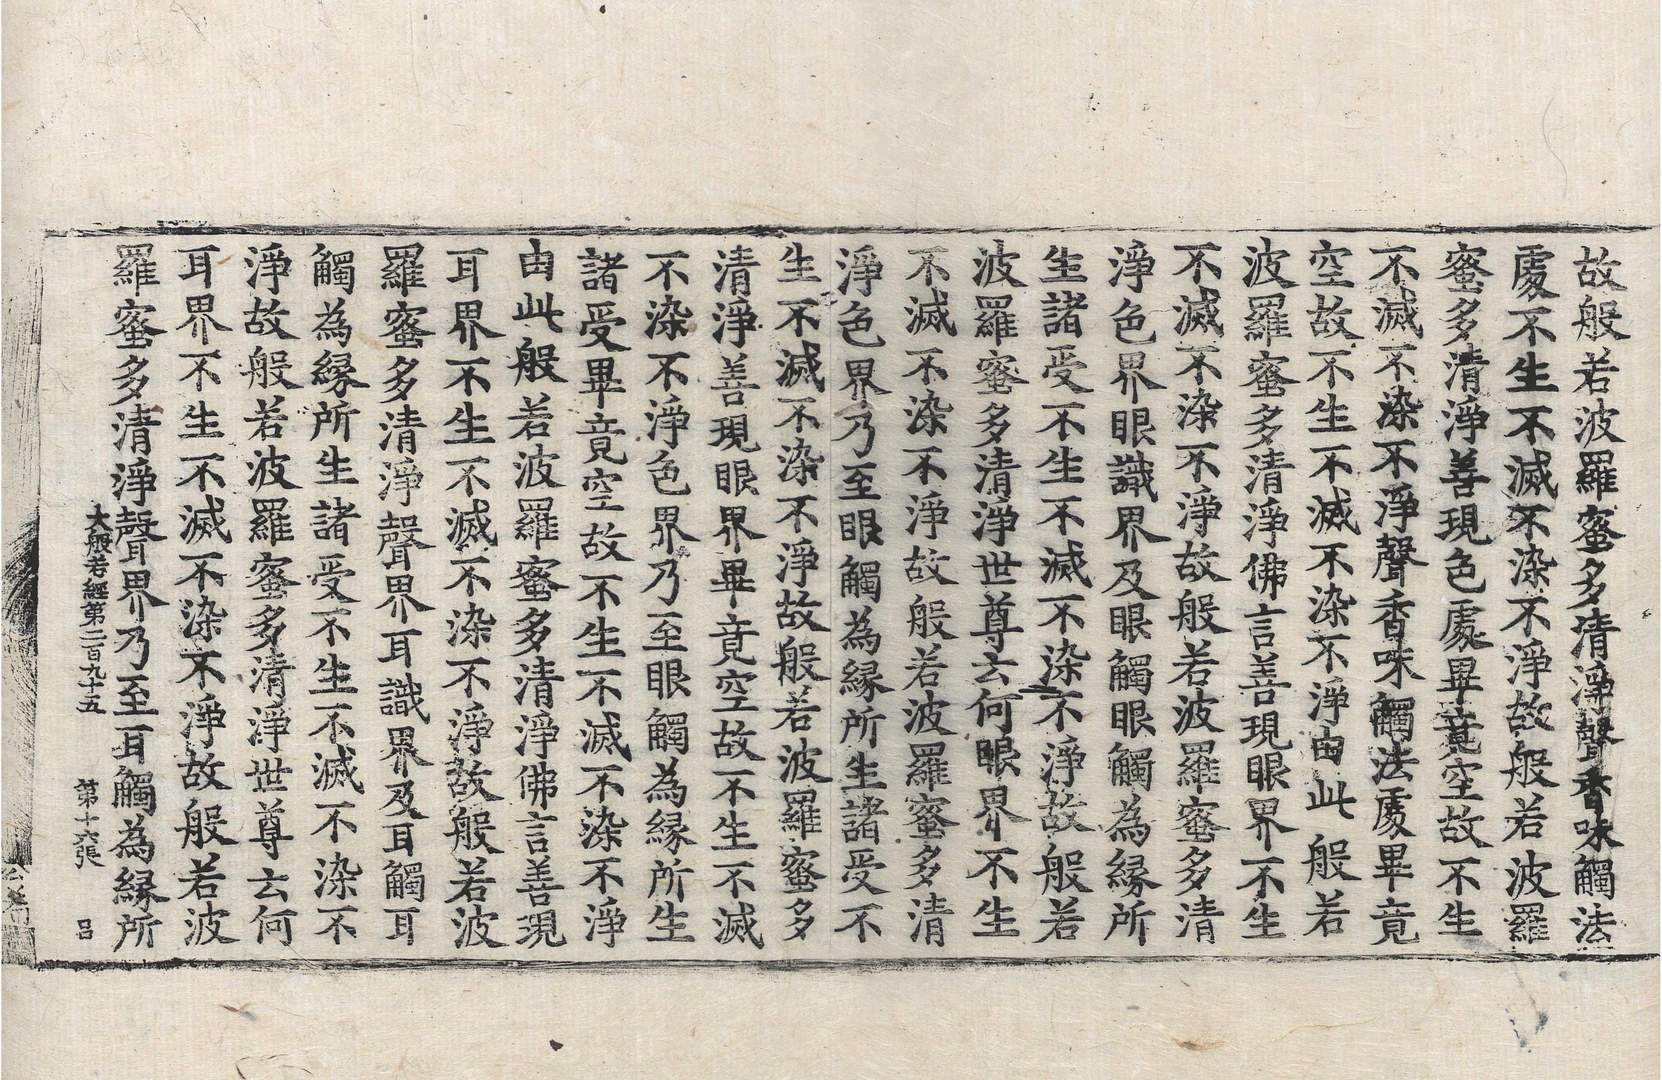 故般若波羅蜜多清淨聲香味觸法
處不生不滅不染不淨故般若波羅
蜜多清淨善現色處畢竟空故不生
不滅不染不淨聲香味觸法處畢竟
空故不生不滅不染不淨由此般若
波羅蜜多清淨佛言善現眼界不生
不滅不染不淨故般若波羅蜜多清
淨色界眼識界及眼觸眼觸為緣所
生諸受不生不滅不染不淨故般若
波羅蜜多清淨世尊云何眼界不生
不滅不染不淨故般若波羅蜜多清
淨色界乃至眼觸為緣所生諸受不
生不滅不染不淨故般若波羅蜜多
清淨善現眼界畢竟空故不生不滅
不染不淨色界乃至眼觸為緣所生
諸受畢竟空故不生不滅不染不淨
由此般若波羅蜜多清淨佛言善現
耳界不生不滅不染不淨故般若波
羅蜜多清淨聲界耳識界及耳觸耳
觸為緣所生諸受不生不滅不染不
淨故般若波羅蜜多清淨世尊云何
耳界不生不滅不染不淨故般若波
羅蜜多清淨聲界乃至耳觸為緣所
大般若經第二百九十五 第十六張 呂